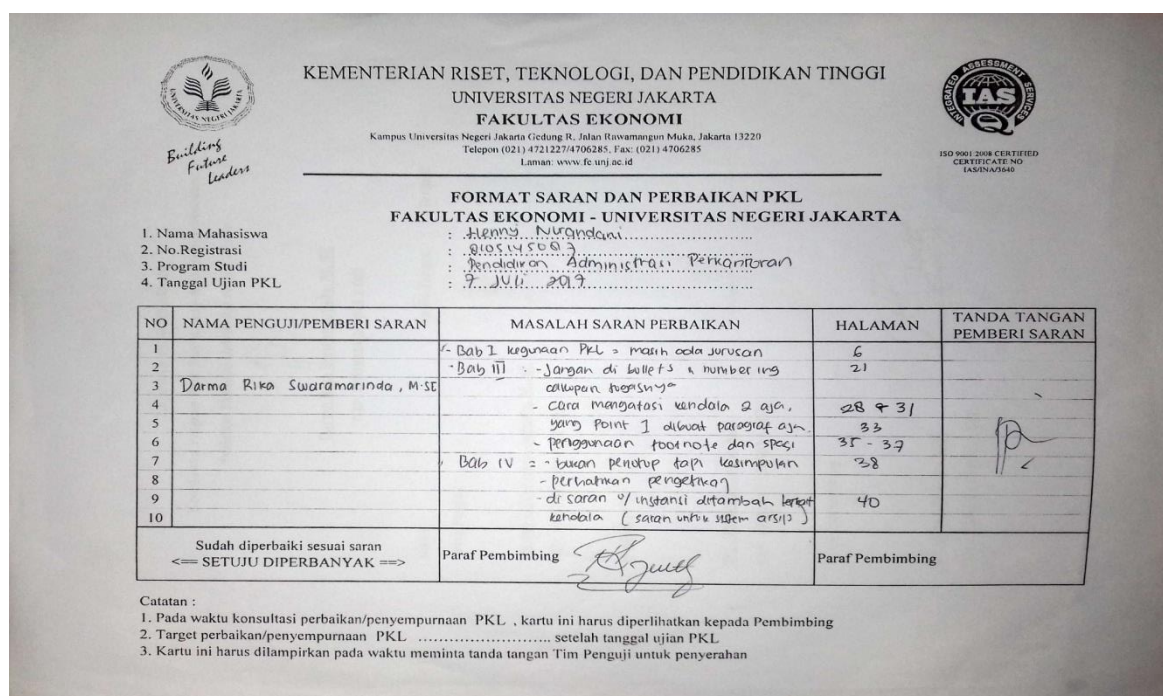 KEMENTERIAN RISET, TEKNOLOGI, DAN PENDIDIKAN TINGGI
UNIVERSITAS NEGERI JAKARTA
FAKULTAS EKONOMI
Kampus Universitas Negeri Jakarta Gedung R, Jalan Rawamangun Muka, Jakarta 13220
Telepon (021) 4721227/4706285, Fax: (021) 4706285
Laman: www.fe.unj.ac.id
UNIVERSITAS NEGERI JAKARTA
Building
Future
Leaders
INTEGRATED ASSESSMENT SERVICES
IAS
ISO 9001:2008 CERTIFIED
CERTIFICATE NO
IAS/INA/3640
FORMAT SARAN DAN PERBAIKAN PKL
FAKULTAS EKONOMI - UNIVERSITAS NEGERI JAKARTA
1. Nama Mahasiswa : Henny
2. No.Registrasi :
3. Program Studi : Pendidikan Administrasi Perkantoran
4. Tanggal Ujian PKL : 7 Juli 2017
NO NAMA PENGUJI/PEMBERI SARAN MASALAH SARAN PERBAIKAN HALAMAN TANDA TANGAN PEMBERI SARAN
1 - Bab I kegunaan PKL = masih ada jurusan 6
2 - Bab III : - Jangan di bullets & numbering 21
3 Darma Rika Swaramarinda, M.SE cakupan tugasnya
4 - cara mengatasi kendala 2 aja, 28 & 31
5 yang point 1 dibuat paragraf aja. 33
6 - penggunaan footnote dan spasi 35 - 37
7 Bab IV = - bukan penutup tapi kesimpulan 38
8 - perhatikan pengetikan
9 - di saran u/ instansi ditambah terkait 40
10 kendala (saran untuk sistem arsip)
Sudah diperbaiki sesuai saran
<== SETUJU DIPERBANYAK ==>
Paraf Pembimbing
Paraf Pembimbing
Catatan :
1. Pada waktu konsultasi perbaikan/penyempurnaan PKL , kartu ini harus diperlihatkan kepada Pembimbing
2. Target perbaikan/penyempurnaan PKL ........................... setelah tanggal ujian PKL
3. Kartu ini harus dilampirkan pada waktu meminta tanda tangan Tim Penguji untuk penyerahan